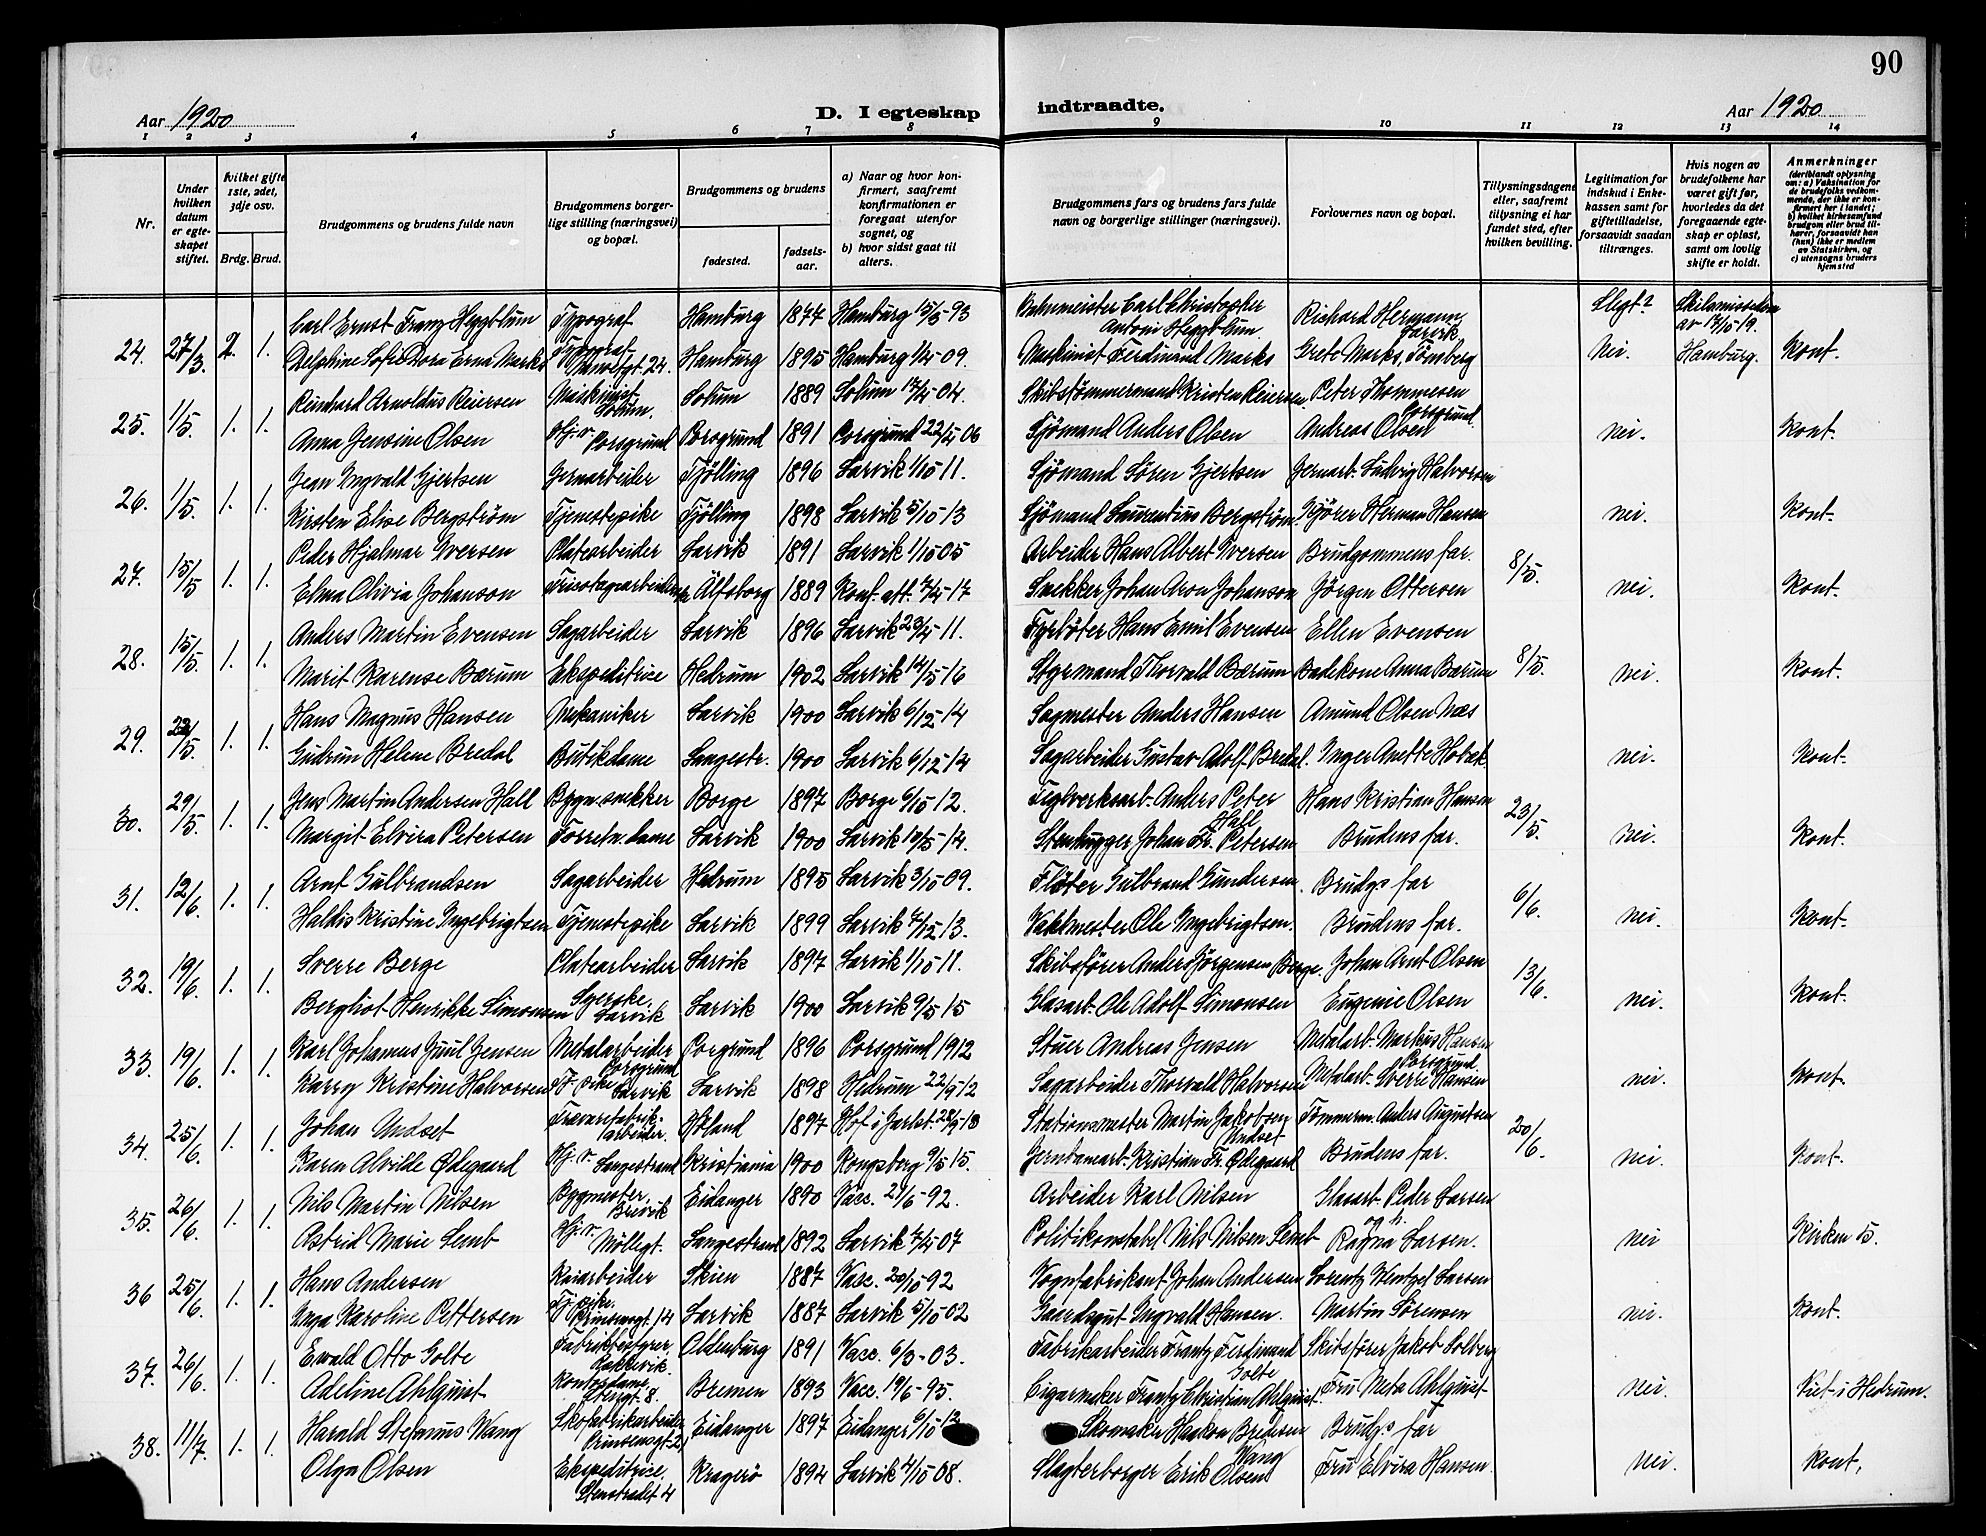 90
Aar 1920
D. I egteskap
indtraadte.
Aar 1920
1 2 3 4 5 6 7 8 9 10 11 12 13 14
Nr.
Under hvilken datum er egteskapet stiftet.
hvilket gifte 1ste, 2det, 3dje osv.
Brdg. Brud.
Brudgommens og brudens fulde navn
Brudgommens borgerlige stilling (næringsvei) og bopæl.
Brudgommens og brudens
fødested.
fødselsaar.
a) Naar og hvor konfirmert, saafremt konfirmationen er foregaat utenfor sognet, og
b) hvor sidst gaat til alters.
Brudgommens fars og brudens fars fulde navn og borgerlige stillinger (næringsvei).
Forlovernes navn og bopæl.
Tillysningsdagene eller, saafremt tillysning ei har fundet sted, efter hvilken bevilling.
Legitimation for indskud i Enkekassen samt for giftetilladelse, forsaavidt saadan tiltrænges.
Hvis nogen av brudefolkene har været gift før, hvorledes da det foregaaende egteskap er opløst, samt om lovlig skifte er holdt.
Anmerkninger (deriblandt oplysning om: a) Vaksination for de brudefolks vedkommende, der ikke er konfirmert her i landet; b) hvilket kirkesamfund brudgom eller brud tilhører, forsaavidt han (hun) ikke er medlem av Statskirken, og c) utensogns bruders hjemsted
Carl Ernst Franz Heggblum Typograf Hamburg 1877 Hamburg 15/3-93 Carl Christopher Antoni Heggblum Richard Hermann Larvik Slegt? Skilsmissedom av 17/5-19.
24. 27/3. 2. 1. Delphine Sofie Dora Erna Marks Hamburg 1895 Hamburg 1/4-09. Maskinist Ferdinand Marks Grete Marks, Tönsberg Nei. Hamburg. Kont.
Reinhard Arnoldus Reiersen Maskinist Solum. Solum 1889 Solum 17/4-04. Skibstømmermand Kristen Reiersen. Peter Thommesen Porsgrund.
25. 1/5. 1. 1. Anna Jensine Olsen Hj. v. Porsgrund Porsgrund 1891 Porsgrund 22/4 06 Sjømand Anders Olsen Andreas Olsen nei. Kont.
Jean Ingvald Gjertsen Jernarbeider Tjølling 1896 Larvik 1/10-11. Sjømand Søren Gjertsen Jernarb. Ludvig Halvorsen
26. 1/5. 1. 1. Kirsten Elise Bergström Tjenestepike Tjølling 1898 Larvik 5/10-13 Sjømand Laurentius Bergström. Kjører Herman Hansen nei. Kont.
Peder Hjalmar Iversen Platearbeider Larvik 1891 Larvik 1/10-05 Arbeider Hans Albert Iversen Brudgommens far.
27. 15/5 1. 1. Elna Olivia Johanson Tricotagearbeiderske Älfsborg 1889 Konf. att. 7/4-17 Snekker Johan Aron Johanson Jörgen Ottersen 8/5. nei. Kont.
Anders Martin Evensen Sagarbeider Larvik 1896 Larvik 23/4-11. Fyrbøter Hans Emil Evensen Ellen Evensen
28. 15/5. 1. 1. Marit Karense Bærum Ekspeditrice Hedrum 1902 Larvik 14/5-16 Styrmand Thorvald Bærum Badekone Anna Bærum 8/5. nei. Kont.
Hans Magnus Hansen Mekaniker Larvik 1900 Larvik 6/12-14 Sagmester Anders Hansen Amund Olsen Næs
29. 22/5. 1. 1. Gudrun Helene Bredal Butikdame Langestr. 1900 Larvik 6/12-14 Sagarbeider Gustav Adolf Bredal. Inger Anette Holtek nei. Kont.
Jens Martin Andersen Hall Bygn. snekker Borge 1897 Borge 6/10 12. Teglverksarb. Anders Peter Hall Hans Kristian Hansen
30. 29/5. 1. 1. Margit Elvira Petersen Forretn. dame Larvik 1900 Larvik 10/5-14. Stenhugger Johan Fr. Petersen Brudens far. 23/5. nei. Kont.
Arnt Gulbrandsen Sagarbeider Hedrum 1895 Larvik 3/10 09. Fløter Gulbrand Gundersen. Brudgs far
31. 12/6. 1. 1. Haldis Kristine Ingebrigtsen Tjenestepike Larvik 1899 Larvik 7/12-13. Vaktmester Ole Ingebrigtsen. Brudens far. 6/6. nei. Kont.
Sverre Berge Platearbeider Larvik 1897 Larvik 1/10-11. Skibsfører Anders Jørgensen Berge. Johan Arnt Olsen
32. 19/6. 1. 1. Bergliot Henrikke Simonsen Syerske. Larvik Larvik 1900 Larvik 9/5-15 Glasarb. Ole Adolf Simonsen Eugenie Olsen 13/6. nei. Kont.
Karl Johannes Juul Jensen Metalarbeider Porsgrund Porgrund 1896 Porsgrund 1912 Stuer Andreas Jensen Metalarb. Markus Hansen Porsgrund.
33. 19/6. 1. 1. Karry Kristine Halvorsen Tj. pike Larvik Larvik 1898 Hedrum 22/9 12 Sagarbeider Thorvald Halvorsen Metalarb. Sverre Hansen nei. Kont.
Johan Undset Trævarefabrik-arbeider. Høland 1897 Hof i Jarlsb. 28/9-13 Stationsmester Martin Jakobsen Undset Tømmerm. Anders Augustsen
34. 25/6. 1. 1. Karen Alvilde Ødegaard Hj. v. Langestrand Kristiania 1900 Kongsberg 9/5 15. Jernbanearb. Kristian Fr. Ødegaard Brudens far. 20/6. nei. Kont.
Nils Martin Nilsen Bygmester, Brevik Eidanger 1890 Vacc. 21/6-92. Arbeider Karl Nilsen Glasarb. Peder Larsen
35. 26/6. 1. 1. Astrid Marie Lemb Hj. v. Møllegt. Langestrand 1892 Larvik 7/4 07 Politikonstabel Nils Nilsen Lemb og h. Ragna Larsen. nei Kirken 15.
Hans Andersen Kaiarbeider Skien 1887 Vacc. 20/10-92 Vognfabrikant Johan Andersen Lorentz Wentzel Larsen
36 25/6. 1. 1. Inga Karoline Pettersen Tj. pike. Prinsensgt. 14 Larvik 1887 Larvik 5/10 02 Gaardsgut Ingvald Hansen. Martin Sørensen nei. Kont.
Ewald Otto Golte Fabrikbestyrer, Oldenburg 1891 Vacc. 6/3-03. Fabrikarbeider Frantz Ferdinand Golte Skibsfører Jakob Solberg
37. 26/6. 1. 1. Adeline Ahlquist Kontordame, 8. Bremen 1893 Vacc. 19/6-95. Cigarmaker Frantz Christian Ahlquist. Fru Meta Ahlquist nei. Viet i Hedrum.
Harald Stefanus Wang Skofabrikarbeider Prinsensgt. 2 Eidanger 1897 Eidanger 6/10 12 Skomaker Haakon Bredesen Wang Brudgs far
38. 11/7. 1. 1. Olga Olsen Ekspeditrice, Stenstradet 4 Kragerø 1894 Larvik 4/10 08. Slagterborger Erik Olsen Fru Elvira Hansen. nei. Kont.